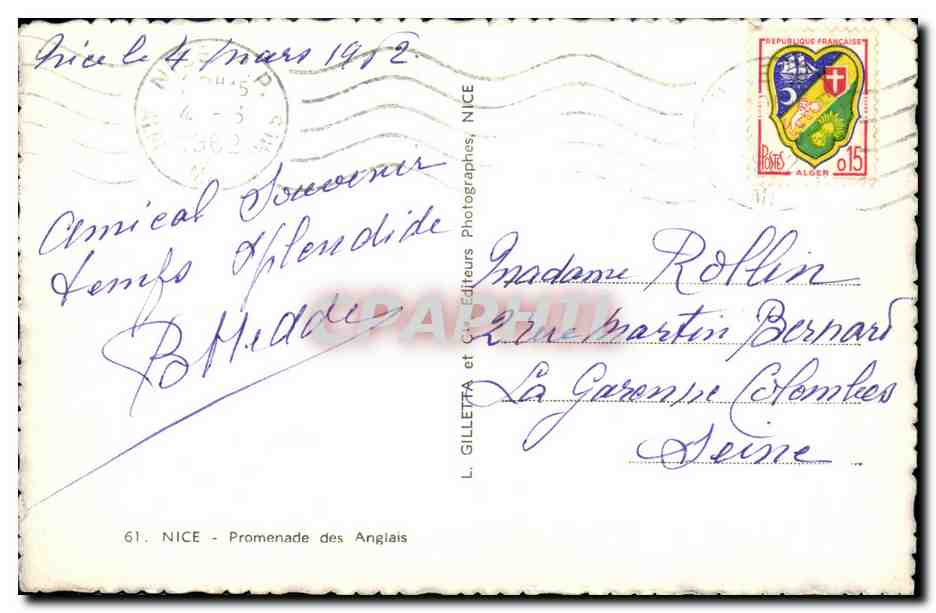 Nice le 4 mars 1962
Amical Souvenir
temps splendide
61. NICE - Promenade des Anglais
L. GILLETTA et Cie Editeurs Photographes, NICE
REPUBLIQUE FRANÇAISE
POSTES
0,15
ALGER
Madame Rollin
2 rue Martin Bernard
La Garenne Colombes
Seine
CPAPHIL